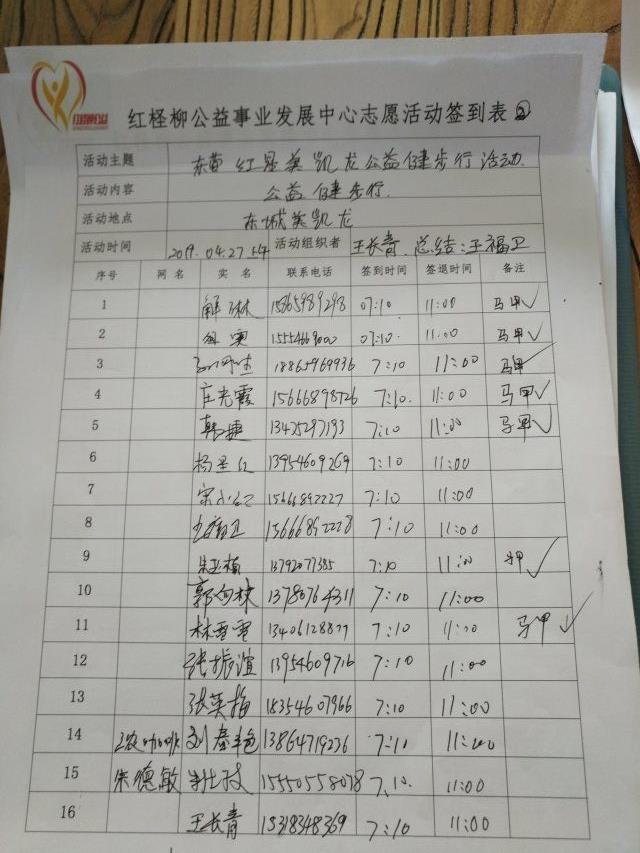 红柽柳公益事业发展中心志愿活动签到表②
活动主题 东营红星美凯龙公益健步行活动
活动内容 公益健步行
活动地点 东城美凯龙
活动时间 2019.04.27 活动组织者 王长青 总结:王福卫
序号 网名 实名 联系电话 签到时间 签退时间 备注
1 07:10 11:00 马甲✓
2 07:10 11:00 马甲✓
3 18865969936 7:10 11:00 马甲✓
4 庄光霞 15666898726 7:10 11:00 马甲✓
5 韩捷 13475297193 7:10 11:00 马甲✓
6 13954609269 7:10 11:00
7 15666892227 7:10 11:00
8 15666892228 7:10 11:00
9 13792077385 7:10 11:00 马甲✓
10 13780764311 7:10 11:00
11 7:10 11:00 马甲✓
12 张振谊 13954609716 7:10 11:00
13 张英梅 18354607966 7:10 11:00
14 13864719236 7:10 11:00
15 朱德敏 15550558078 7:10 11:00
16 王长青 15318348369 7:10 11:00